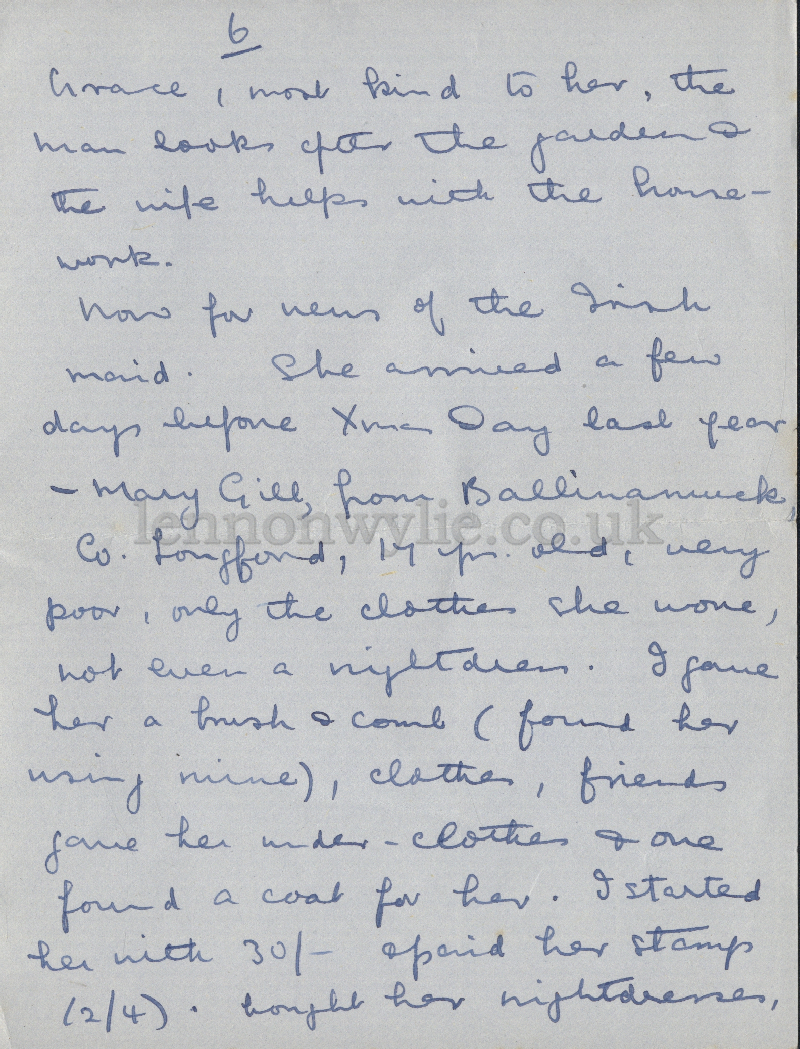 6
Grace, most kind to her, the
man looks after the garden &
the wife helps with the house-
work.
Now for news of the Irish
maid. She arrived a few
days before Xmas Day last year
- Mary Gill, from Ballinamuck,
lennonwylie.co.uk
Co. Longford, 17 yrs. old, very
poor, only the clothes she wore,
not even a nightdress. I gave
her a brush & comb (found her
using mine), clothes, friends
gave her under-clothes & one
found a coat for her. I started
her with 30/- & paid her stamp
(2/4). bought her nightdresses,